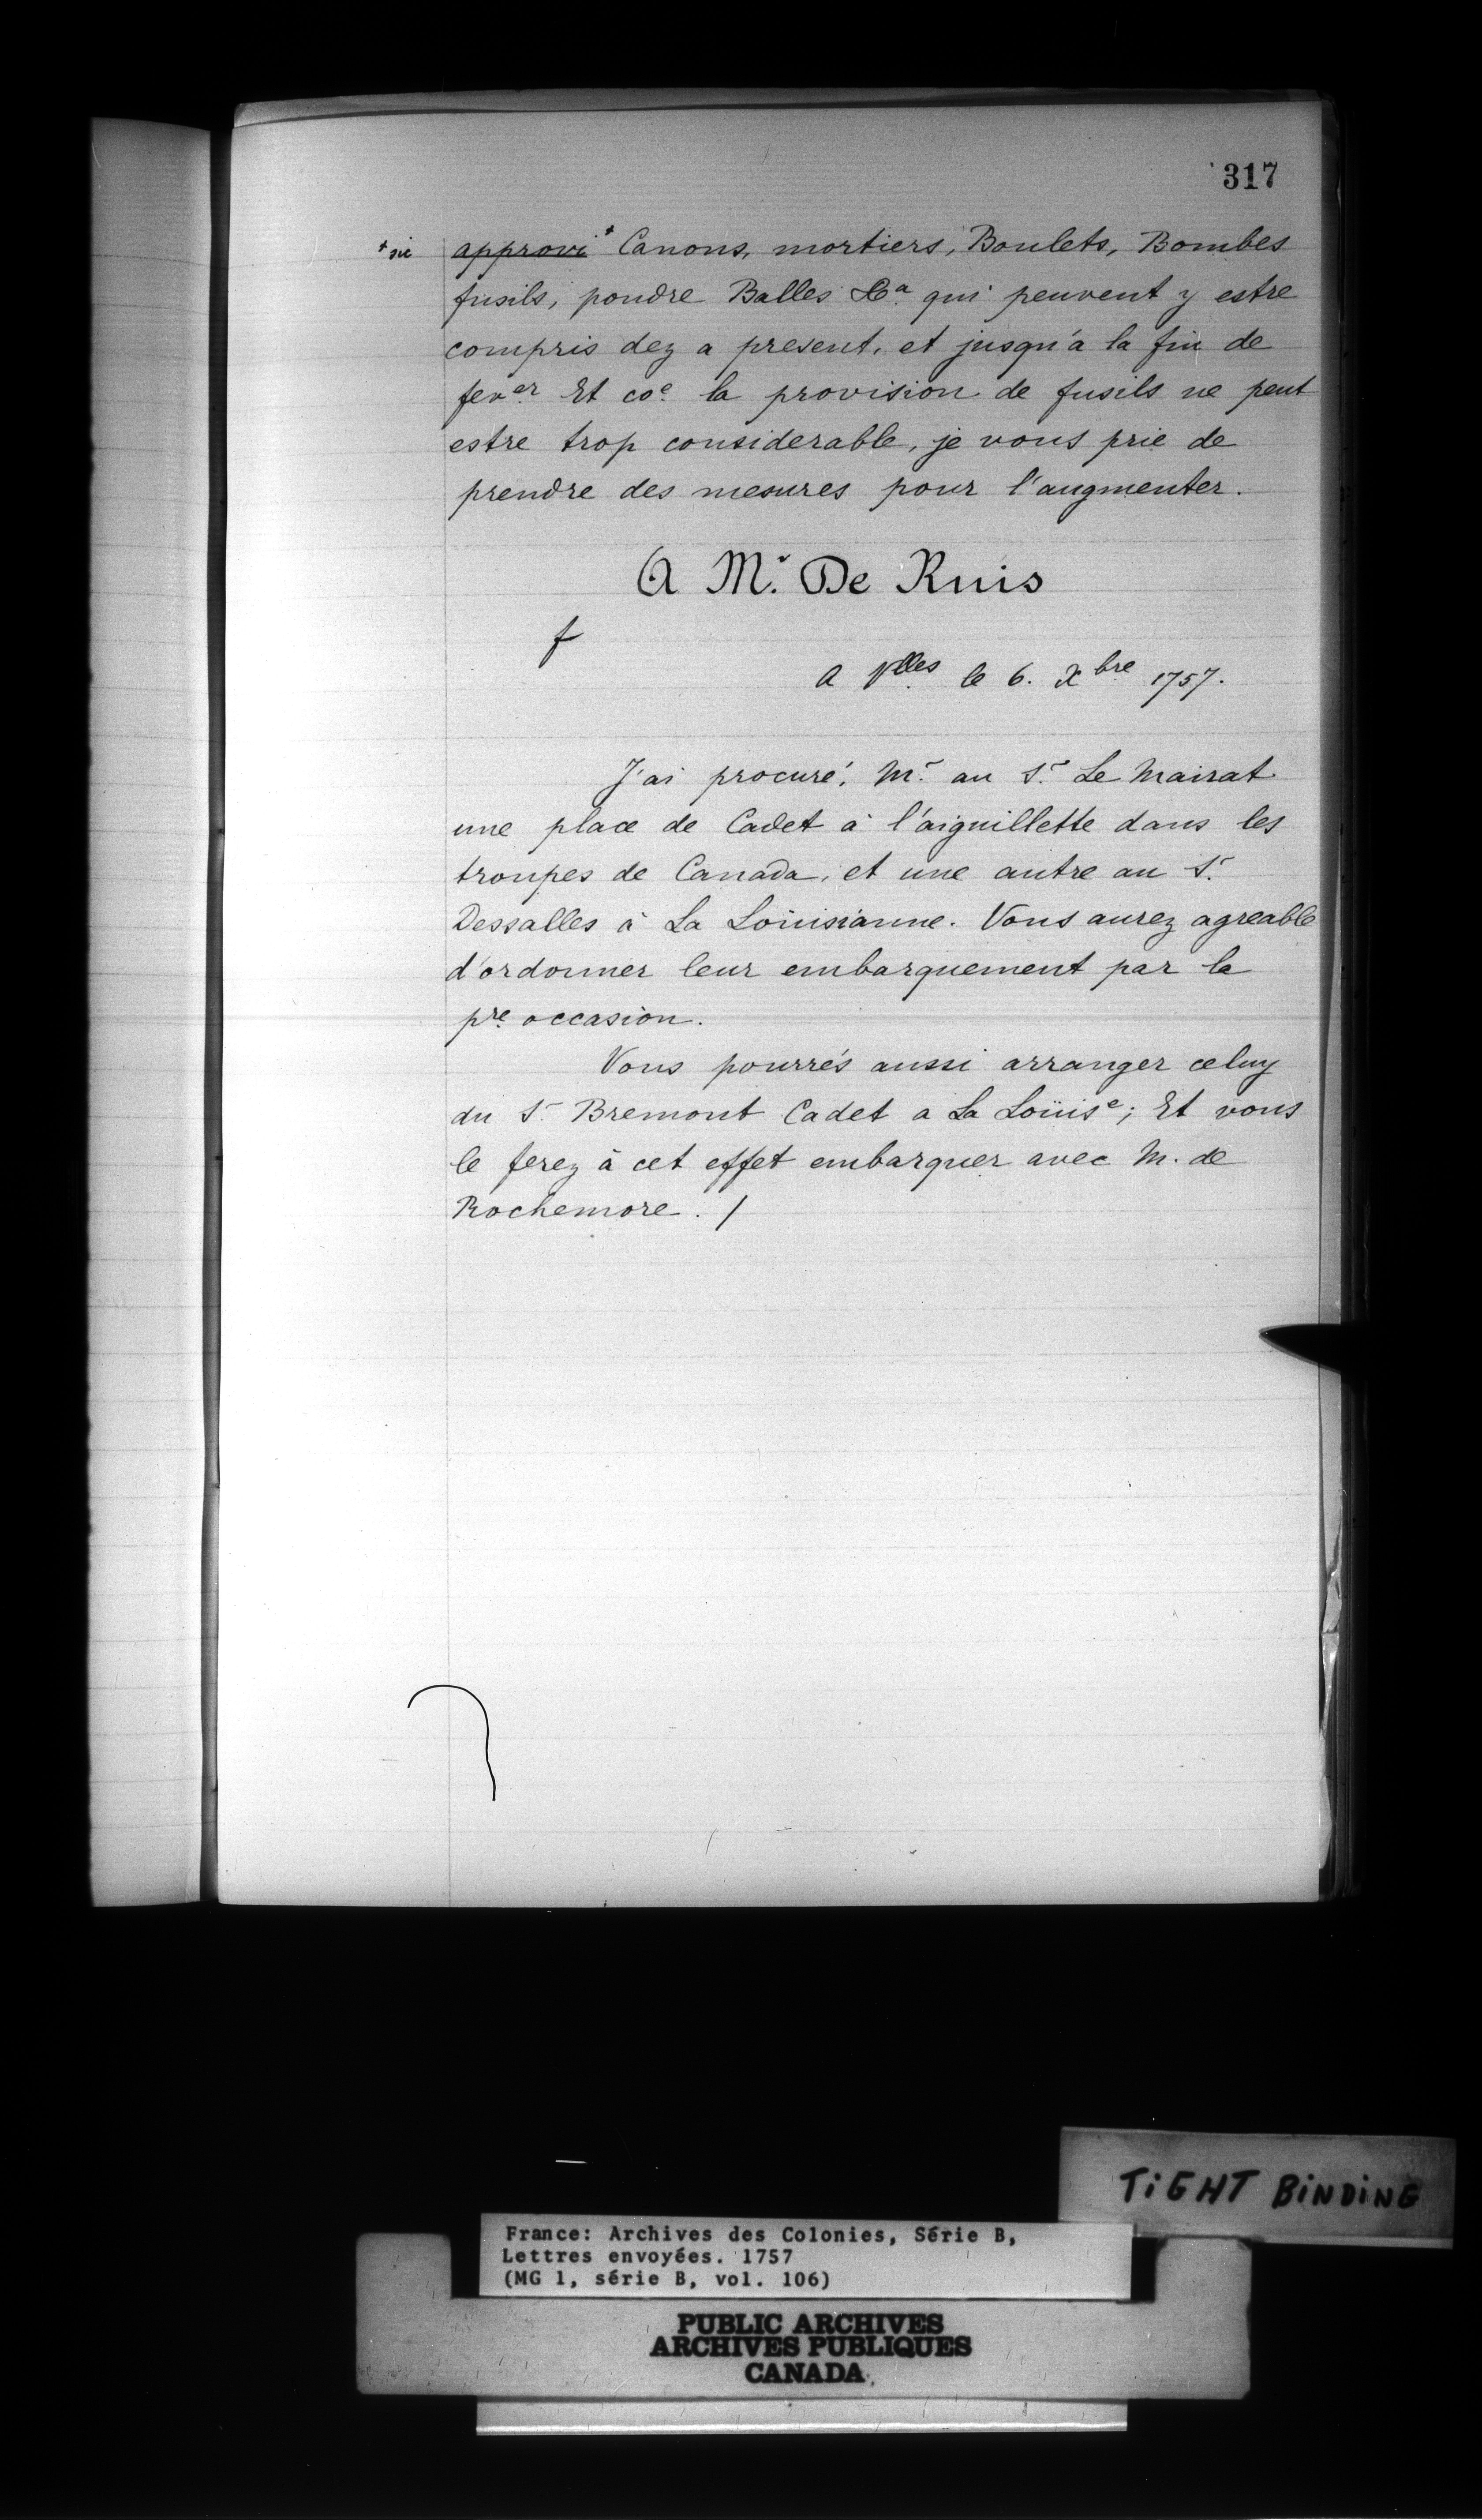 317
+ sic approvi + Canons, mortiers, Boulets, Bombes
fusils, poudre Balles &a. qui peuvent y estre
compris dez a present, et jusqu'à la fin de
fever. Et coe. la provision de fusils ne peut
estre trop considerable, je vous prie de
prendre des mesures pour l'augmenter.
A Mr. De Ruis
f
A Vlles le 6. Xbre 1757.
J'ai procuré, Mr. au Sr. Le Mairat
une place de Cadet à l'aiguillette dans les
troupes de Canada, et une autre au Sr.
Dessalles à La Loüisianne. Vous aurez agreable
d'ordonner leur embarquement par la
pre. occasion.
Vous pourrés aussi arranger celuy
du Sr. Bremont Cadet a La Loüise; Et vous
le ferez à cet effet embarquer avec M. de
Rochemore. /
TiGHT BiNDiNG
France: Archives des Colonies, Série B,
Lettres envoyées. 1757
(MG 1, série B, vol. 106)
PUBLIC ARCHIVES
ARCHIVES PUBLIQUES
CANADA